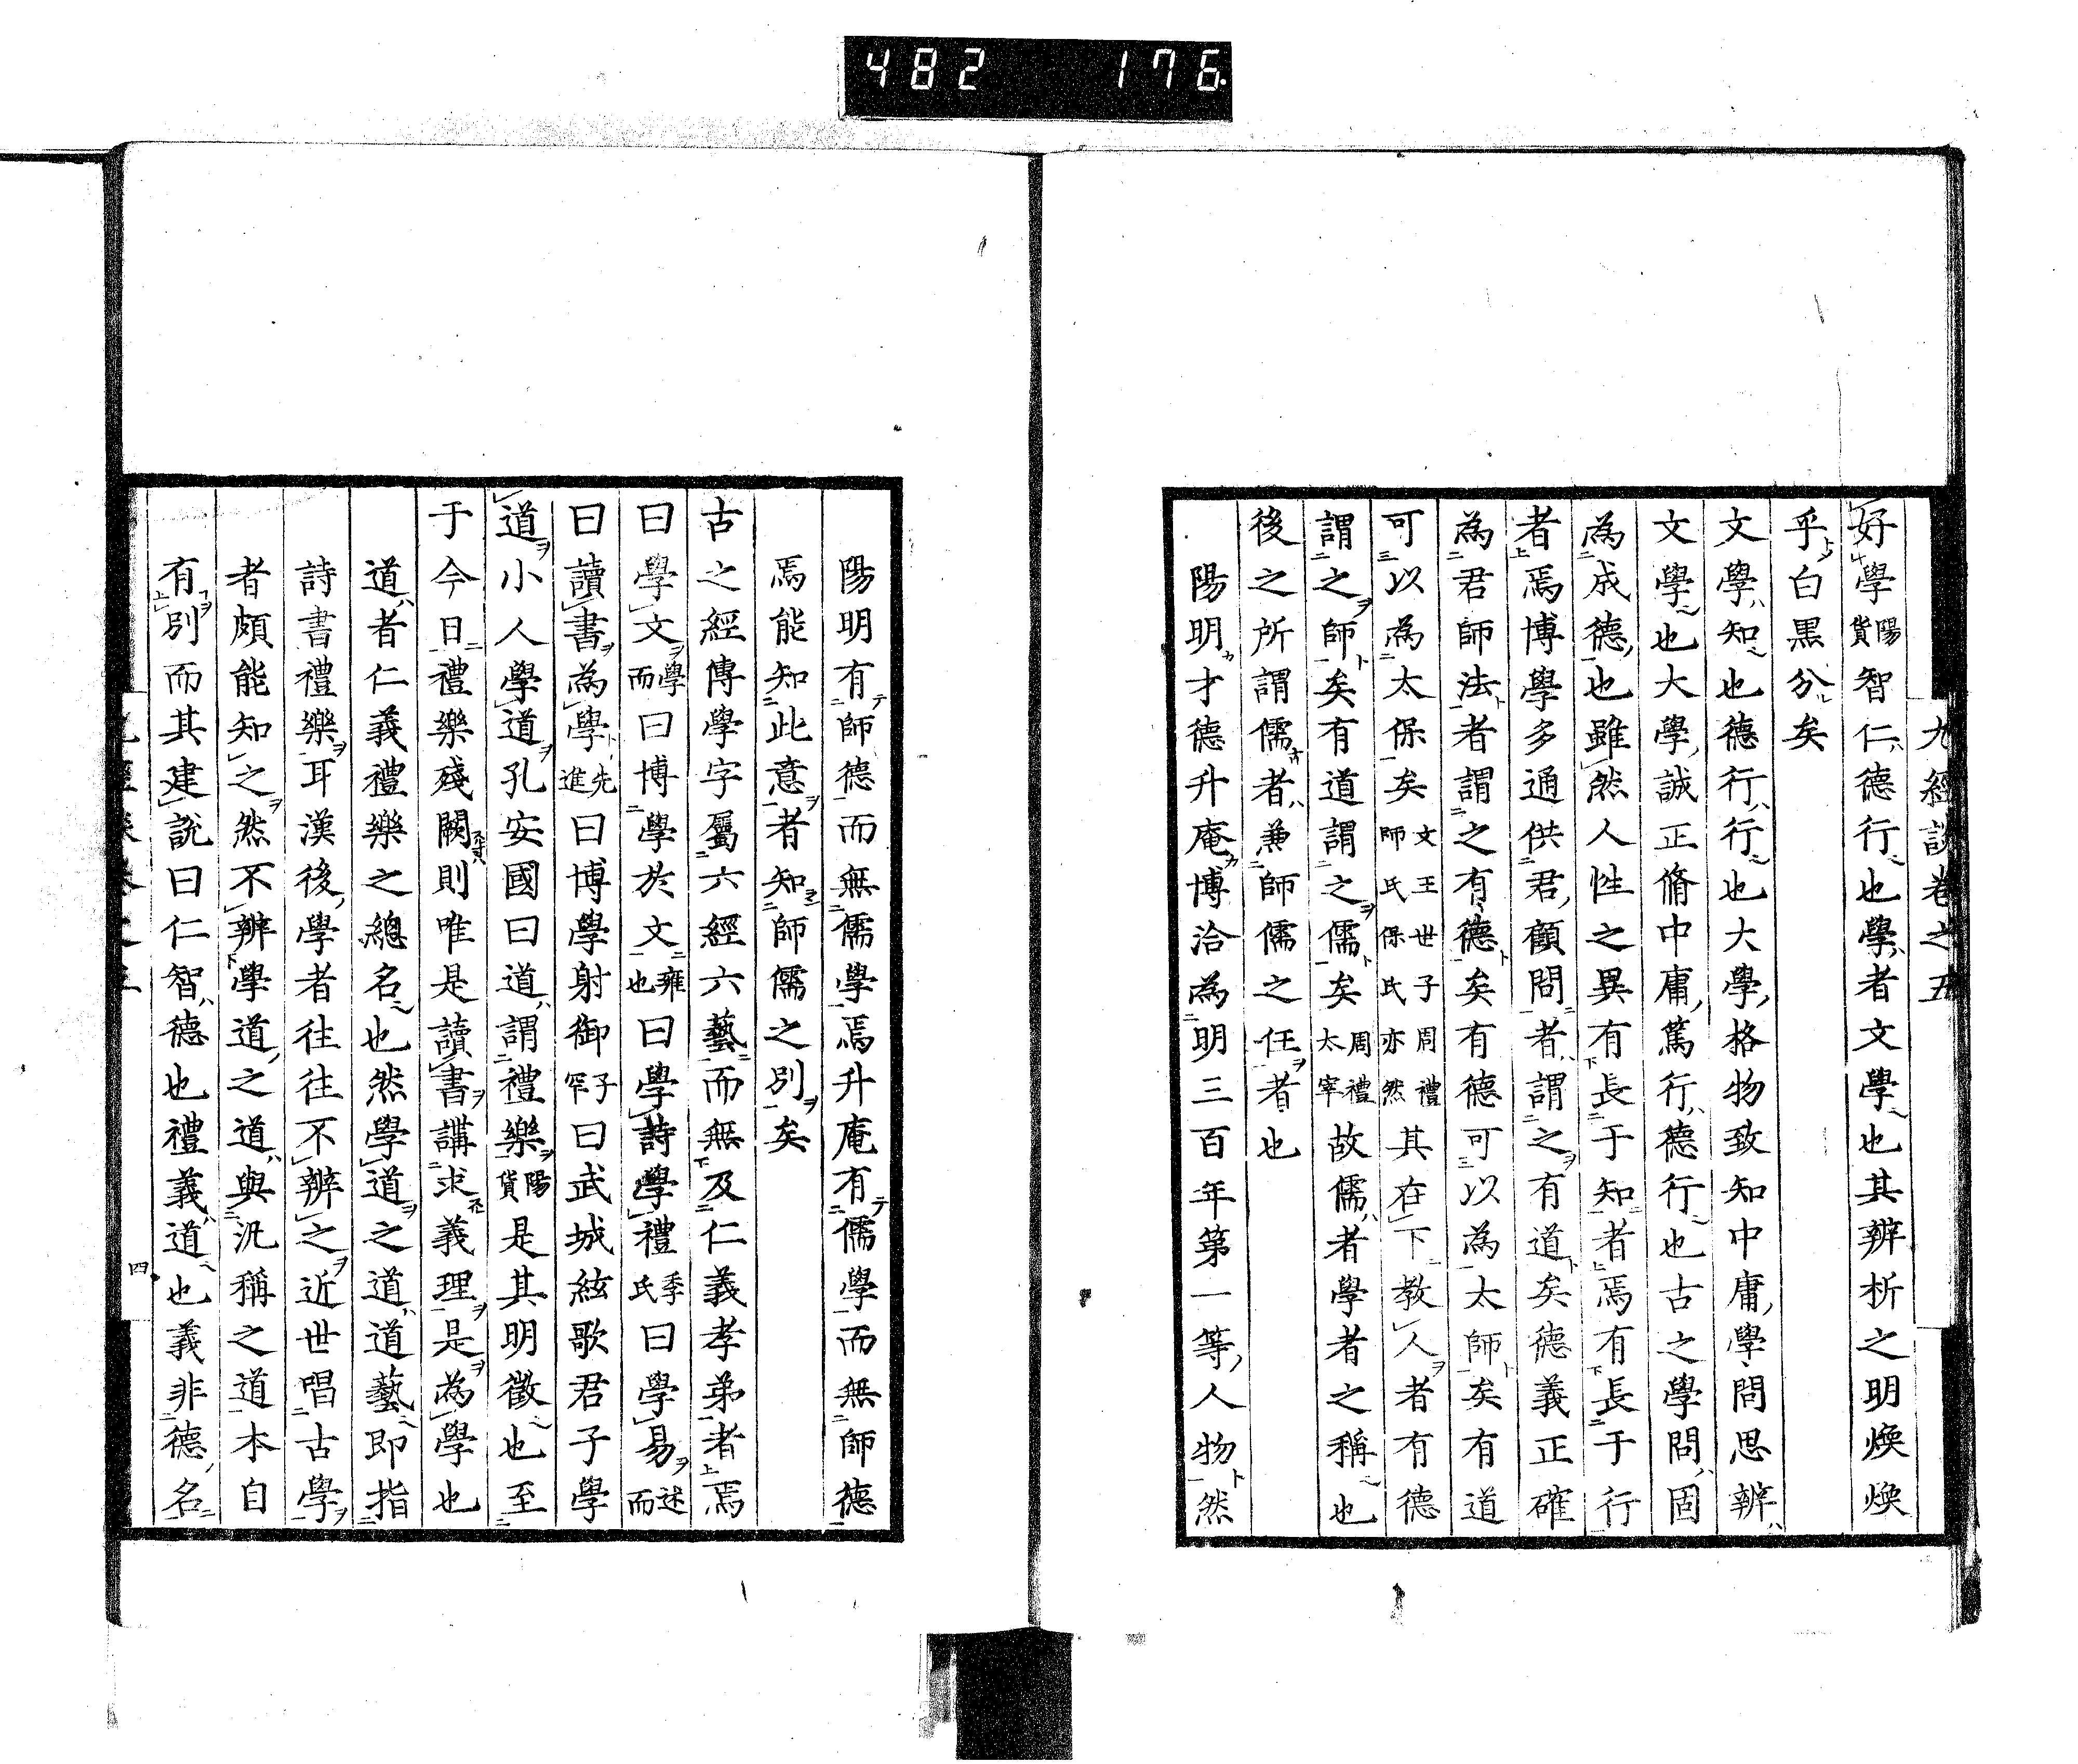 482 176
九經談卷之五
好學陽貨智仁德行也學者文學也其辨析之明煥煥
乎白黒分矣
文學知也德行行也大學格物致知中庸學問思辨
文學也大學誠正脩中庸篤行德行也古之學問固
為成德也雖然人性之異有長于知者焉有長于行
者焉博學多通供君顧問者謂之有道矣德義正確
為君師法者謂之有德矣有德可以為太師矣有道
可以為太保矣文王世子周禮師氏保氏亦然其在下教人者有德
謂之師矣有道謂之儒矣周禮太宰故儒者學者之稱也
後之所謂儒者兼師儒之任者也
陽明才德升庵博洽為明三百年第一等人物然
陽明有師德而無儒學焉升庵有儒學而無師德
焉能知此意者知師儒之別矣
古之經傳學字屬六經六藝而無及仁義孝弟者焉
曰學文學而曰博學於文雍也曰學詩學禮季氏曰學易述而
曰讀書為學先進曰博學射御子罕曰武城絃歌君子學
道小人學道孔安國曰道謂禮樂陽貨是其明徵也至
于今日禮樂殘闕則唯是讀書講求義理是為學也
道者仁義禮樂之總名也然學道之道道藝即指
詩書禮樂耳漢後學者往往不辨之近世唱古學
者頗能知之然不辨學道之道與汎稱之道本自
有別而其建說曰仁智德也禮義道也義非德名
四